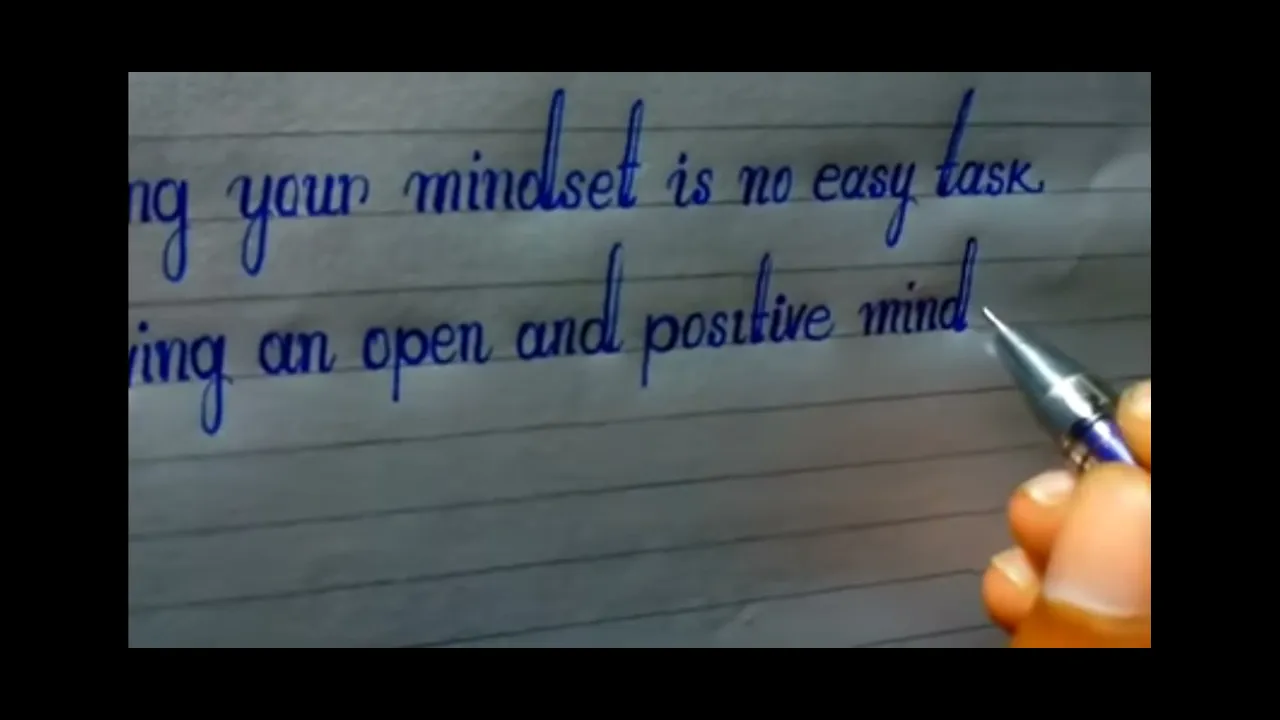 ng your mindset is no easy task
ing an open and positive mind